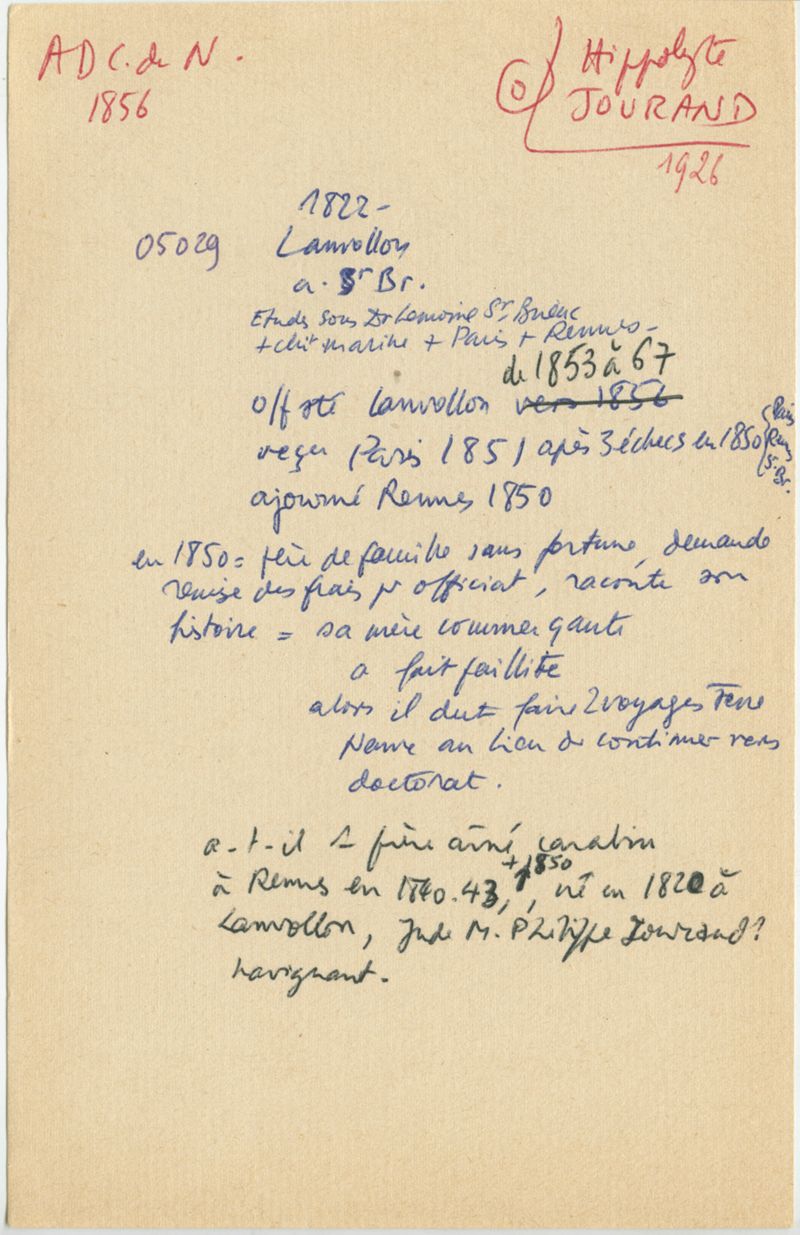 A D C. du N.
1856
O
Hippolyte
JOURAND
1926
1822 -
05029
Lanvollon
a. St Br.
Etudes sous Dr Lemoine St. Brieuc
+ chir marine + Paris + Rennes -
de 1853 à 67
Off sté Lanvollon vers 1856
reçu Paris 1851 après 3 échecs en 1850 { Paris Rennes St. Br.
ajourné Rennes 1850
en 1850 = père de famille sans fortune, demande
remise des frais pr officiat, raconte son
histoire = sa mère commerçante
a fait faillite
alors il dut faire 2 voyages Terre
Neuve au lieu de continuer vers
doctorat.
a-t-il 1 frère aîné carabin
+ 1850
à Rennes en 1840.43, né en 1820 à
Lanvollon, Jude M. Philippe Jourand ?
navignant.